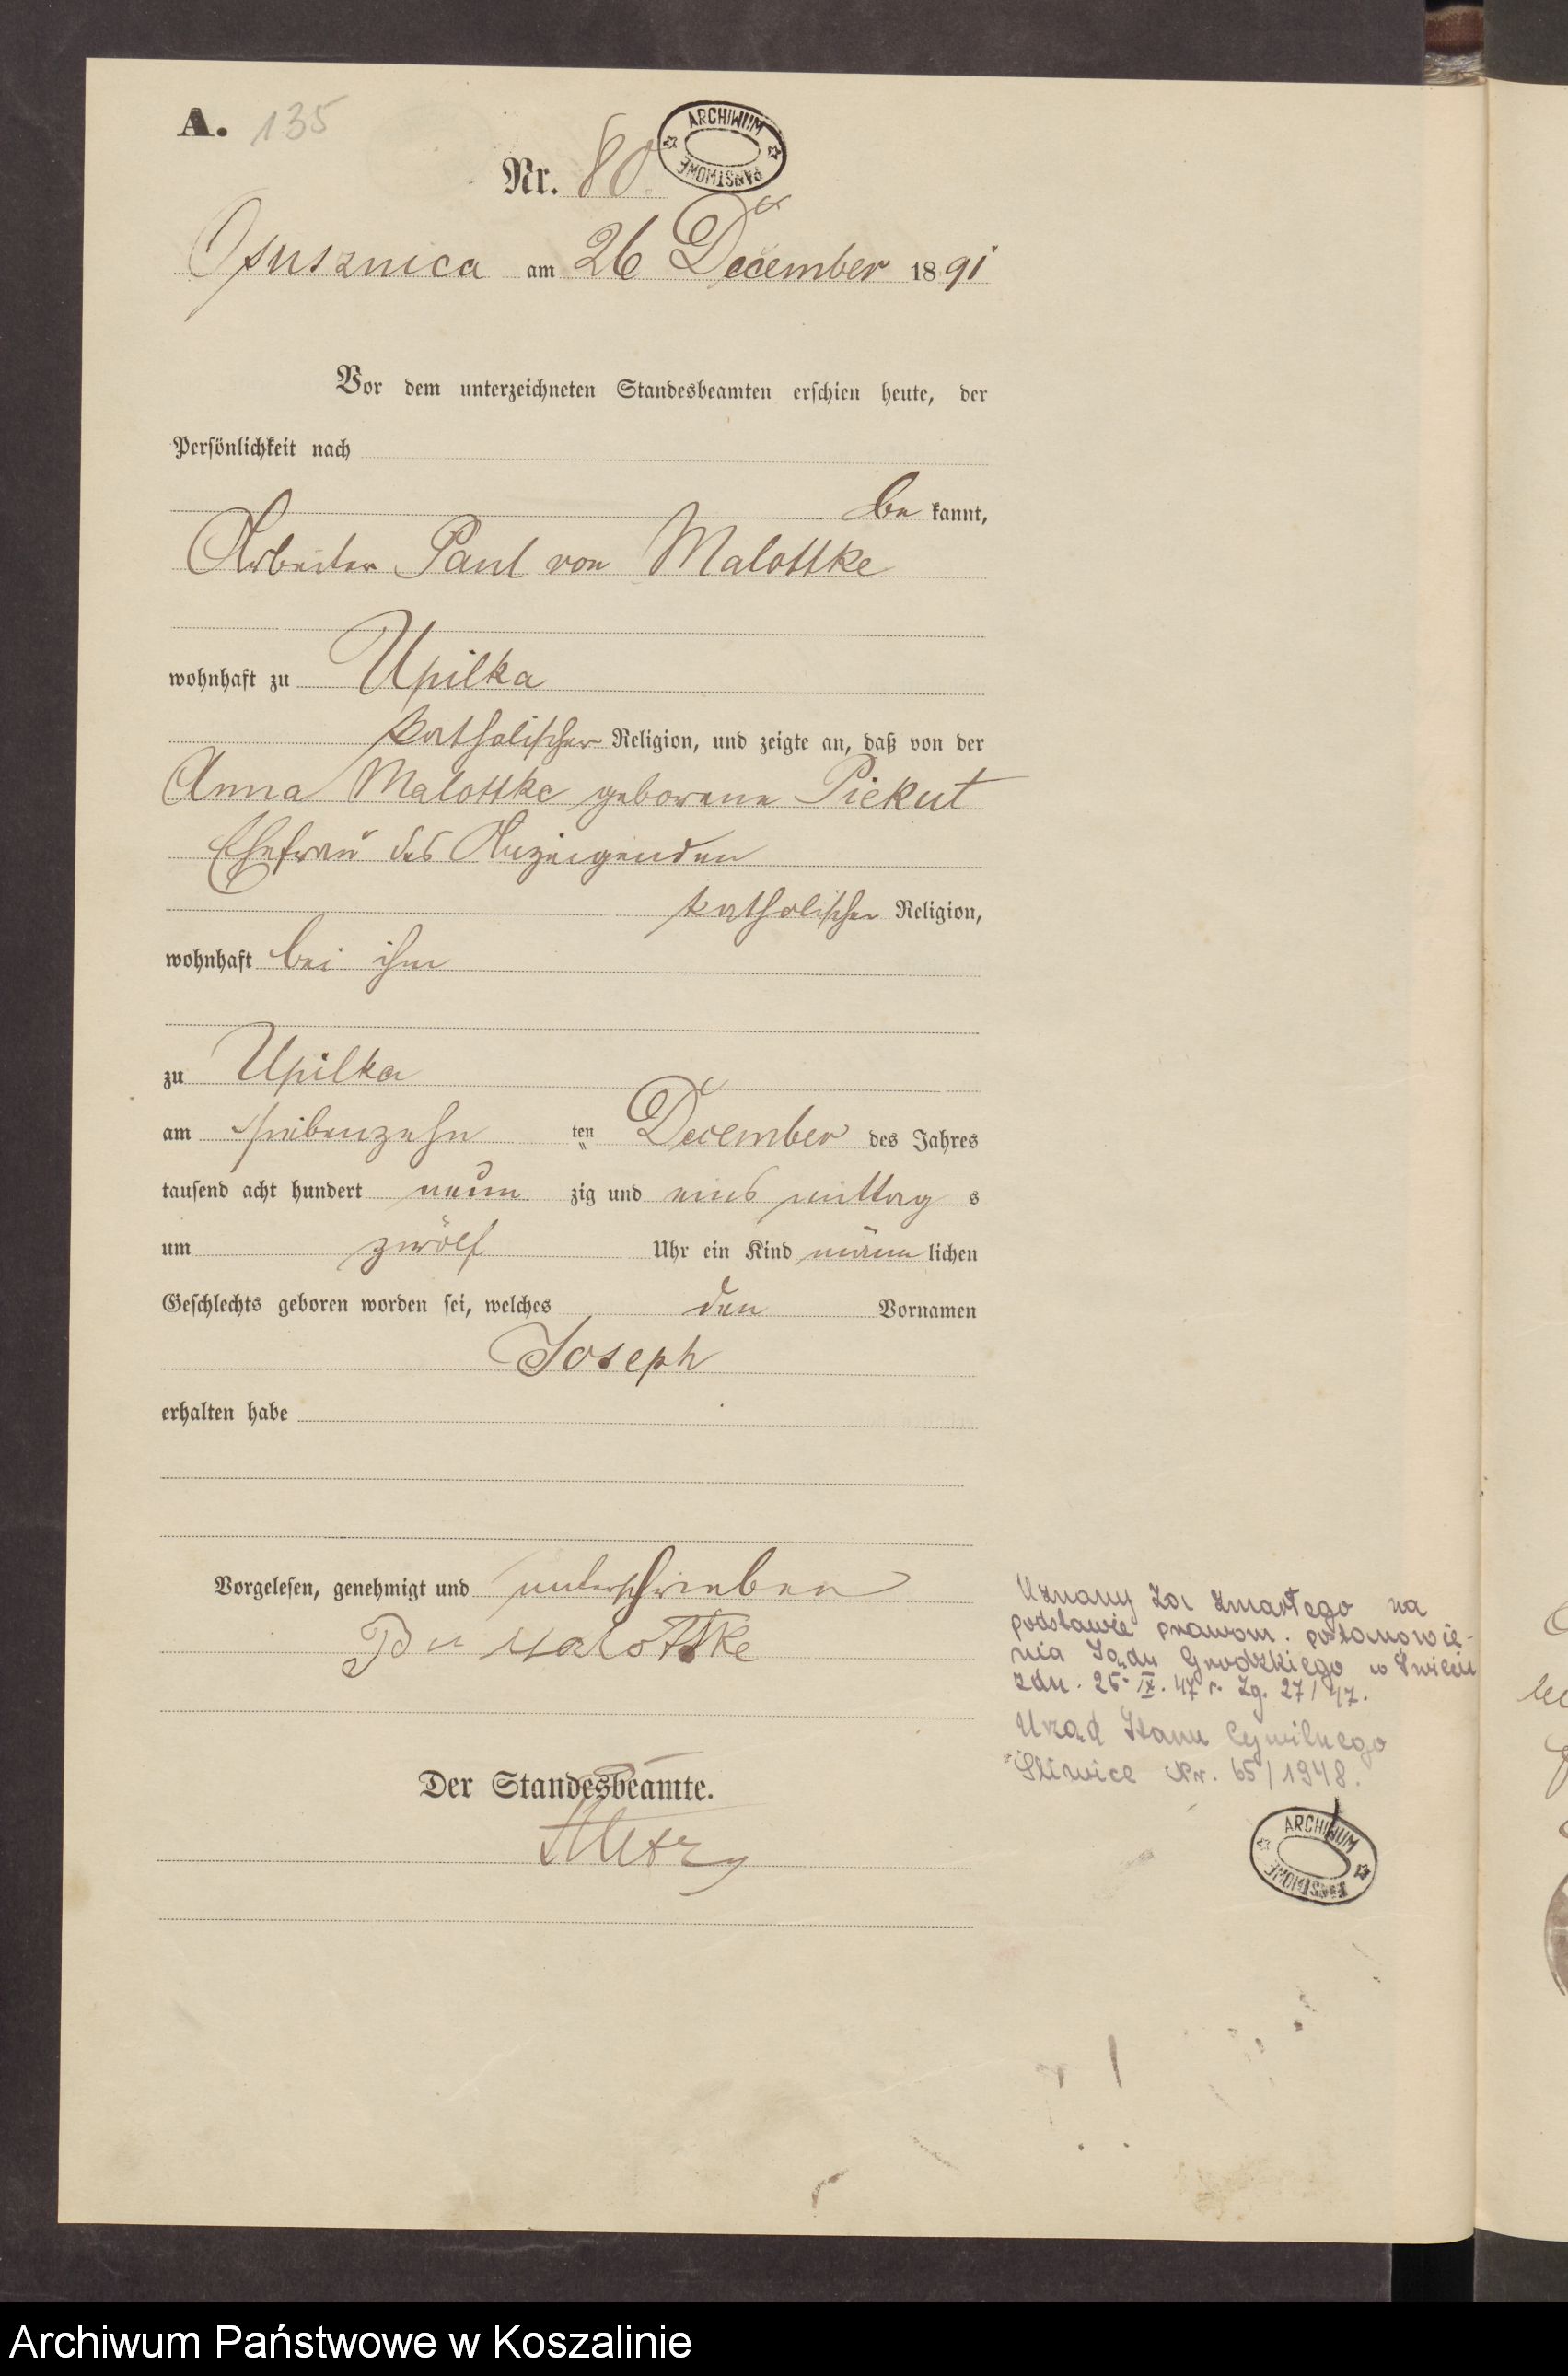 A. 135
ARCHIWUM PAŃSTWOWE
Nr. 80.
Osusznica am 26 December 1891
Vor dem unterzeichneten Standesbeamten erschien heute, der
Persönlichkeit nach
be kannt,
Arbeiter Paul von Malottke
wohnhaft zu Upilka
katholischer Religion, und zeigte an, daß von der
Anna Malottke geborene Piekut
Ehefrau des Anzeigenden
katholischer Religion,
wohnhaft bei ihm
zu Upilka
am siebenzehn ten December des Jahres
tausend acht hundert neun zig und eins mittag s
um zwölf Uhr ein Kind männ lichen
Geschlechts geboren worden sei, welches den Vornamen
Joseph
erhalten habe
Vorgelesen, genehmigt und unterschrieben
Malottke
Der Standesbeamte.
Uznany za zmarłego na
podstawie prawom. postanowie-
nia Sądu Grodzkiego w Świeciu
z dn. 25. IX. 47 r. Zg. 27/47.
Urząd Stanu Cywilnego
Śliwice Nr. 65/1948.
ARCHIWUM PAŃSTWOWE
Archiwum Państwowe w Koszalinie